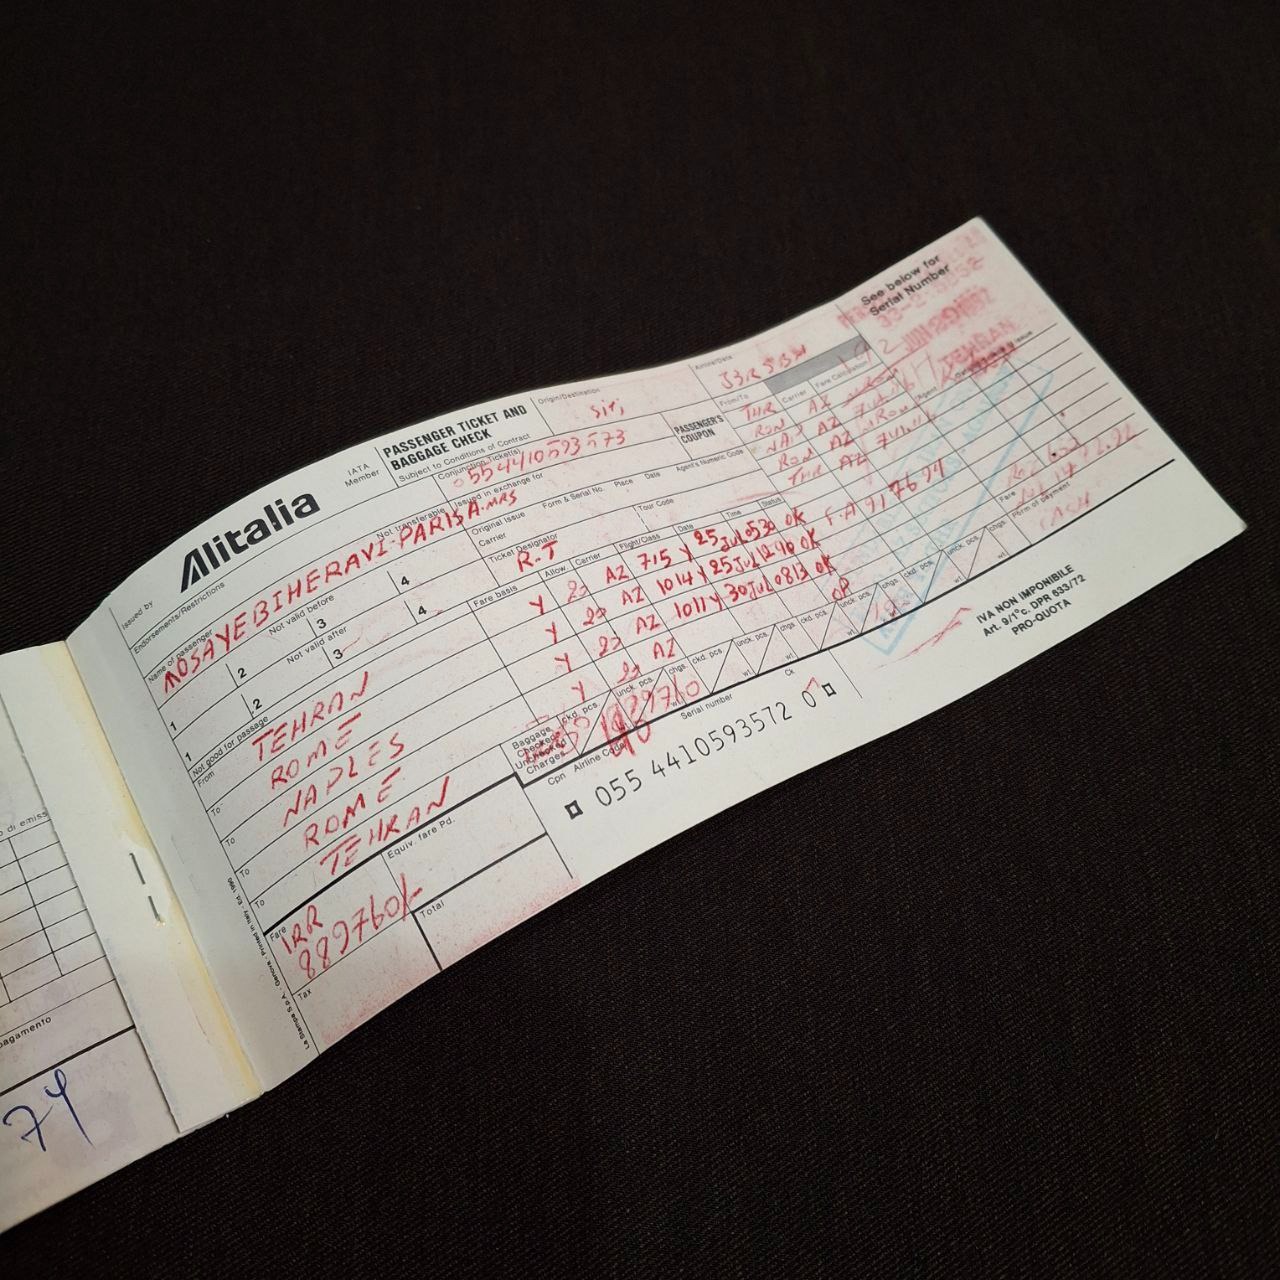 Alitalia
IATA
Member
PASSENGER TICKET AND
BAGGAGE CHECK
Subject to Conditions of Contract
Origin/Destination
Siti
Airline/Data
See below for
Serial Number
Issued by
Endorsements/Restrictions
Conjunction Ticket(s)
0554410593573
PASSENGER'S
COUPON
From/To
Carrier
Fare Calculation
THR
ROM AZ
NAP AZ
ROM AZ
THR AZ
TEHRAN
Name of passenger
Not transferable
MOSAYEBIHERAVI-PARISA.MRS
Issued in exchange for
Form & Serial No.
Place
Date
Agent's Numeric Code
Original Issue
Carrier
Ticket Designator
Tour Code
R.T
Not valid before
1 2 3 4
Not valid after
1 2 3 4
Not good for passage
Fare basis
Allow
Carrier
Flight/Class
Date
Time
Status
From TEHRAN Y 20 AZ 715 Y 25 Jul 0530 OK
To ROME Y 20 AZ 1014 Y 25 Jul 1240 OK
To NAPLES Y 20 AZ 1011 Y 30 Jul 0813 OK
To ROME Y 20 AZ OP
To TEHRAN
F.A 917694
Fare
Form of payment
CASH
Baggage
Checked
Unchecked
Charges
ckd. pcs.
unck. pcs.
chgs.
wt
Fare
IRR
889760/-
Equiv. fare Pd.
Tax
Total
Cpn
Airline Code
Serial number
Ck
055 4410593572 0
IVA NON IMPONIBILE
Art. 9/1°c. DPR 633/72
PRO-QUOTA
La Stampa S.p.A. - Genova - Printed in Italy - Ed. 1990
di emiss
pagamento
74